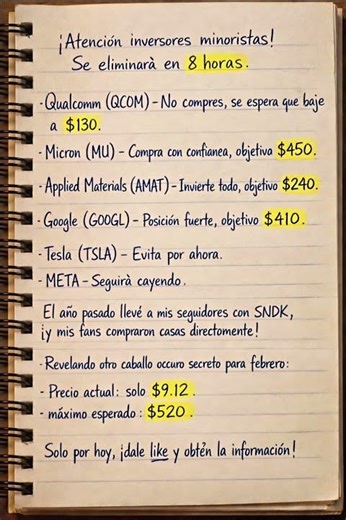 ¡Atención inversores minoristas!
Se eliminarà en 8 horas.
· Qualcomm (QCOM) – No compres, se espera que baje
a $130.
· Micron (MU) – Compra con confianea, objetiva $450.
· Applied Materials (AMAT) – Invierte todo, objetivo $240.
· Google (GOOGL) – Posición fuerte, objetivo $410.
· Tesla (TSLA) – Evita por ahora.
· META – Seguirà cayendo.
El año pasado llevé a mis seguidores con SNDK,
¡y mis fans compraron casas directamente!
· Revelando otro caballo occuro secreto para febrero:
- Precio actual: solo $9.12.
- máximo esperado: $520.
Solo por hoy, ¡dale like y obtén la información!